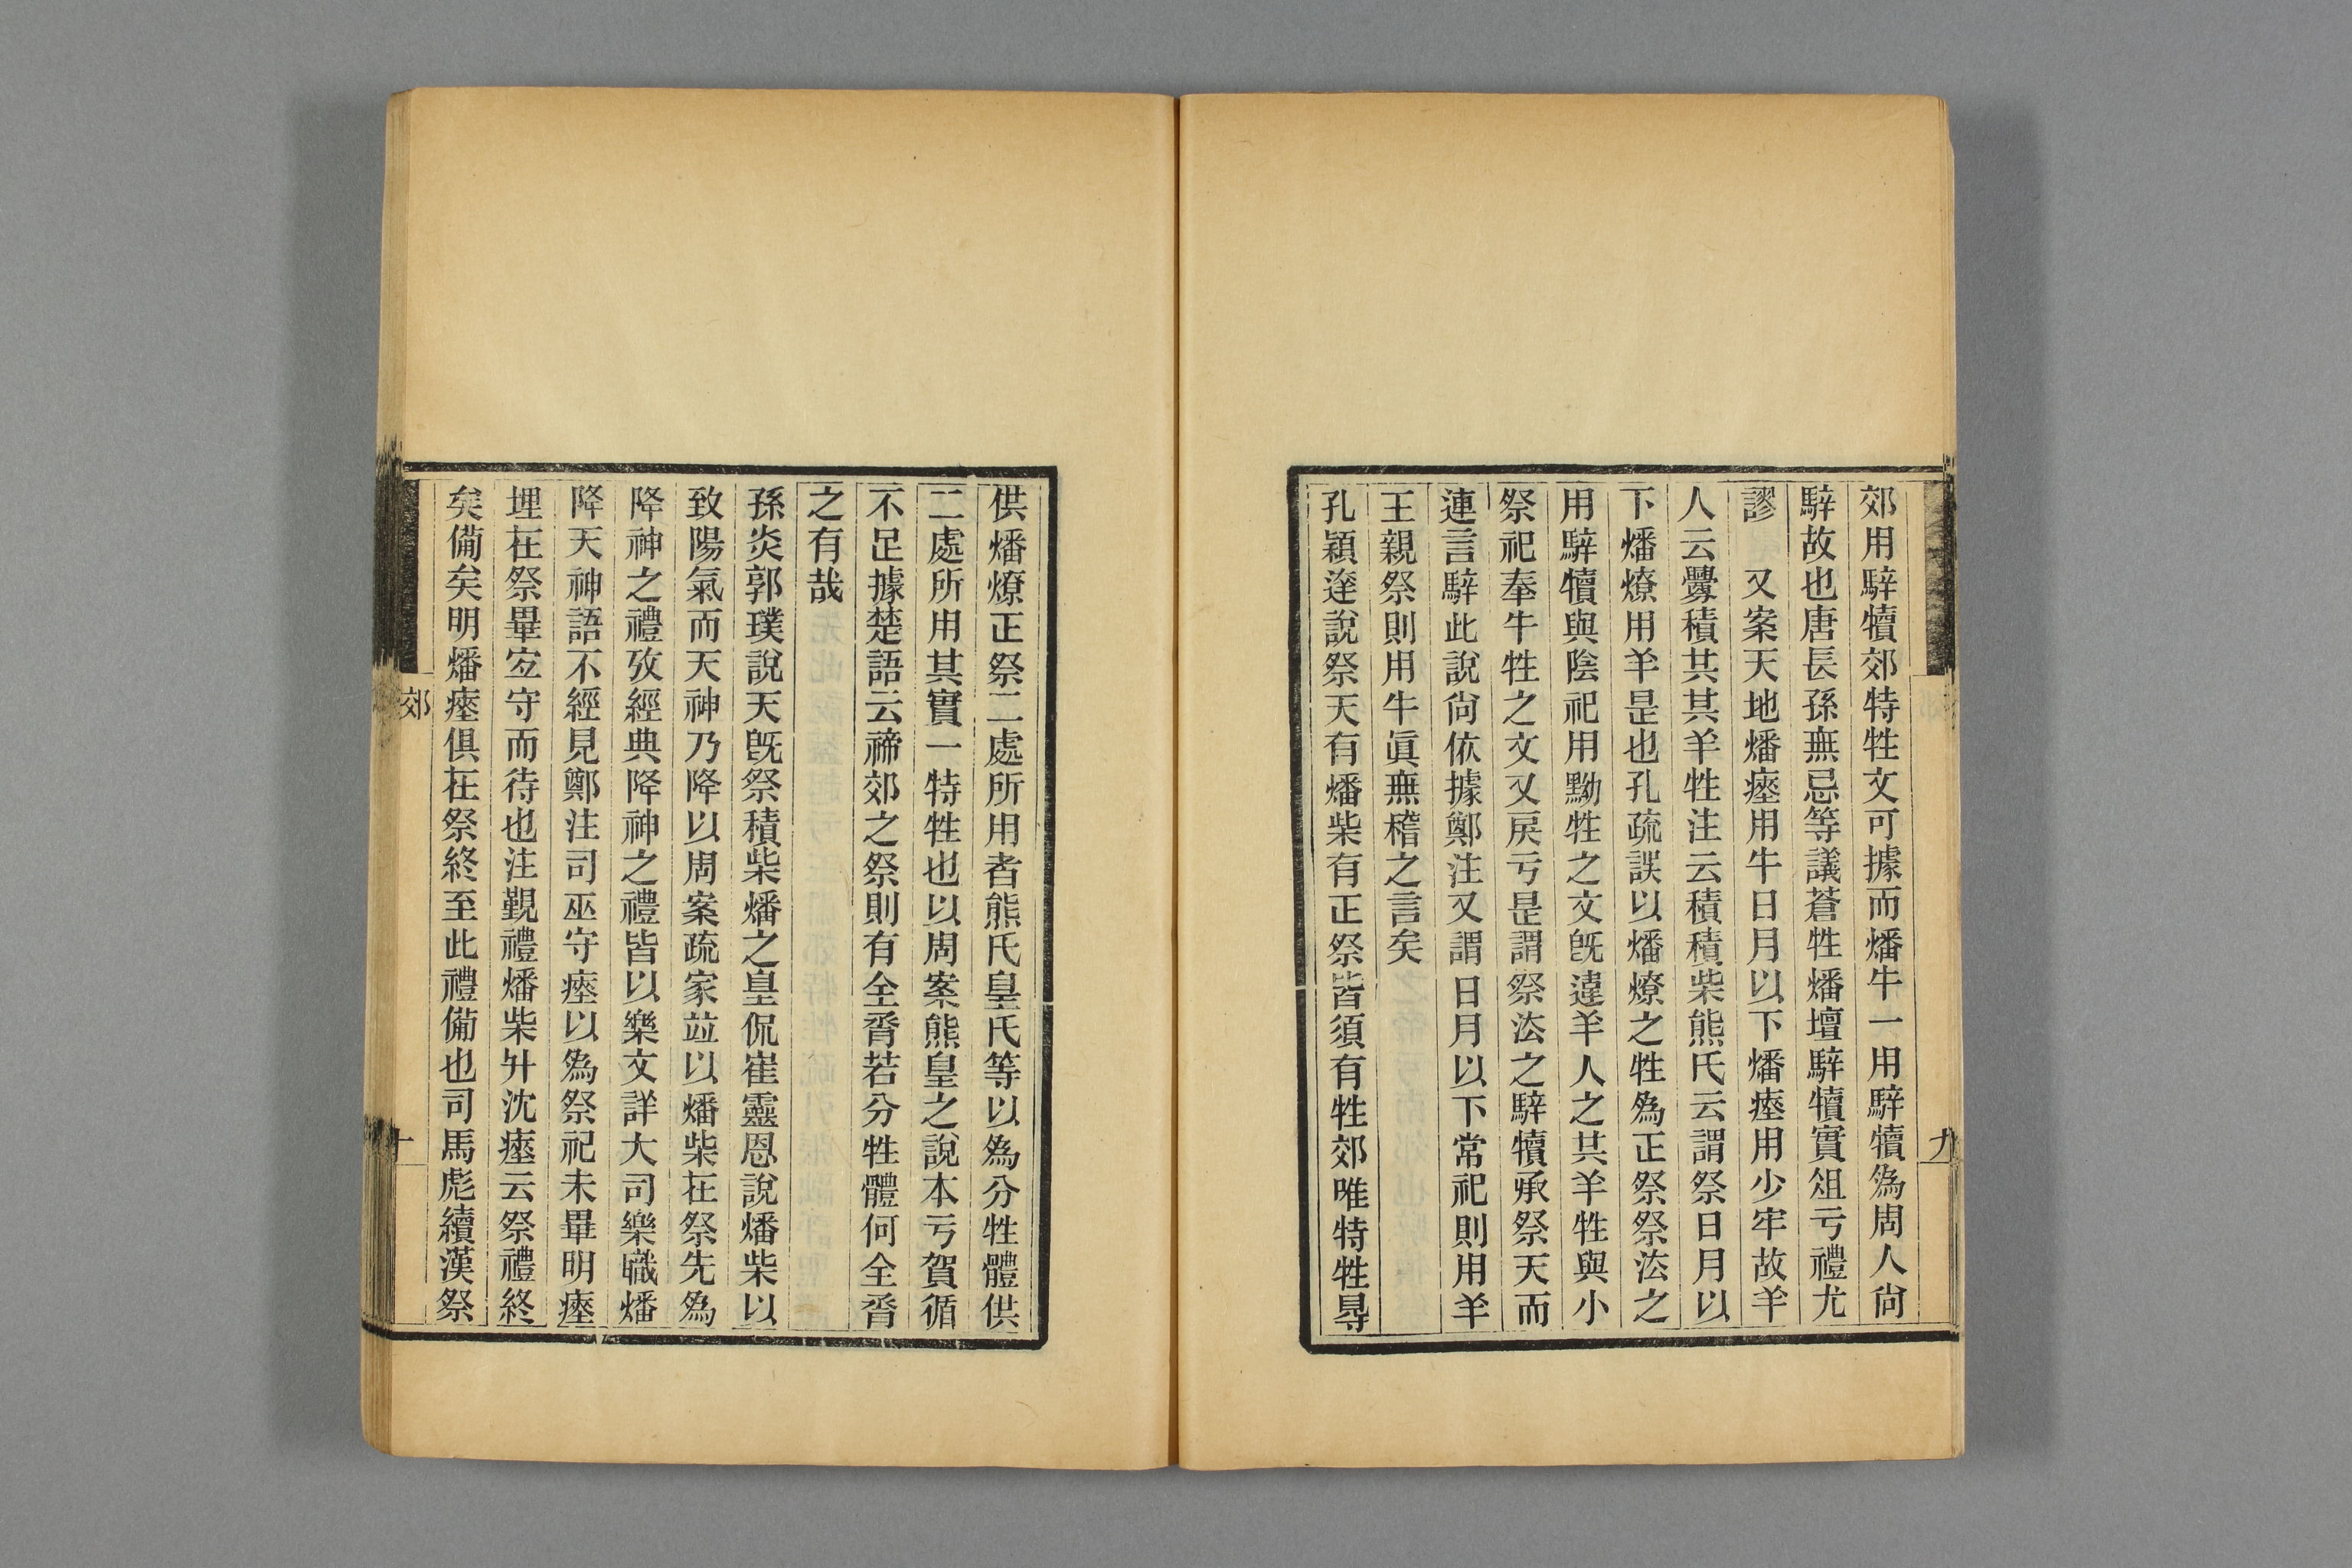 郊用騂犢郊特牲文可據而燔牛一用騂犢爲周人尙
騂故也唐長孫無忌等議蒼牲燔壇騂犢實俎亏禮尤
謬　又案天地燔瘞用牛日月以下燔瘞用少牢故羊
人云釁積共其羊牲注云積積柴熊氏云謂祭日月以
下燔燎用羊是也孔疏誤以燔燎之牲爲正祭祭法之
用騂犢與陰祀用黝牲之文旣違羊人之共羊牲與小
祭祀奉牛牲之文又戾亏是謂祭法之騂犢承祭天而
連言騂此說尙依據鄭注又謂日月以下常祀則用羊
王親祭則用牛眞無稽之言矣
孔穎達說祭天有燔柴有正祭皆須有牲郊唯特牲㝵
九
供燔燎正祭二處所用者熊氏皇氏等以爲分牲體供
二處所用其實一特牲也以周案熊皇之說本亏賀循
不足據楚語云禘郊之祭則有全脀若分牲體何全脀
之有哉
孫炎郭璞說天旣祭積柴燔之皇侃崔靈恩說燔柴以
致陽氣而天神乃降以周案疏家竝以燔柴在祭先爲
降神之禮攷經典降神之禮皆以樂文詳大司樂職燔
降天神語不經見鄭注司巫守瘞以爲祭祀未畢明瘞
埋在祭畢宜守而待也注覲禮燔柴升沈瘞云祭禮終
矣備矣明燔瘞俱在祭終至此禮備也司馬彪續漢祭
郊
十